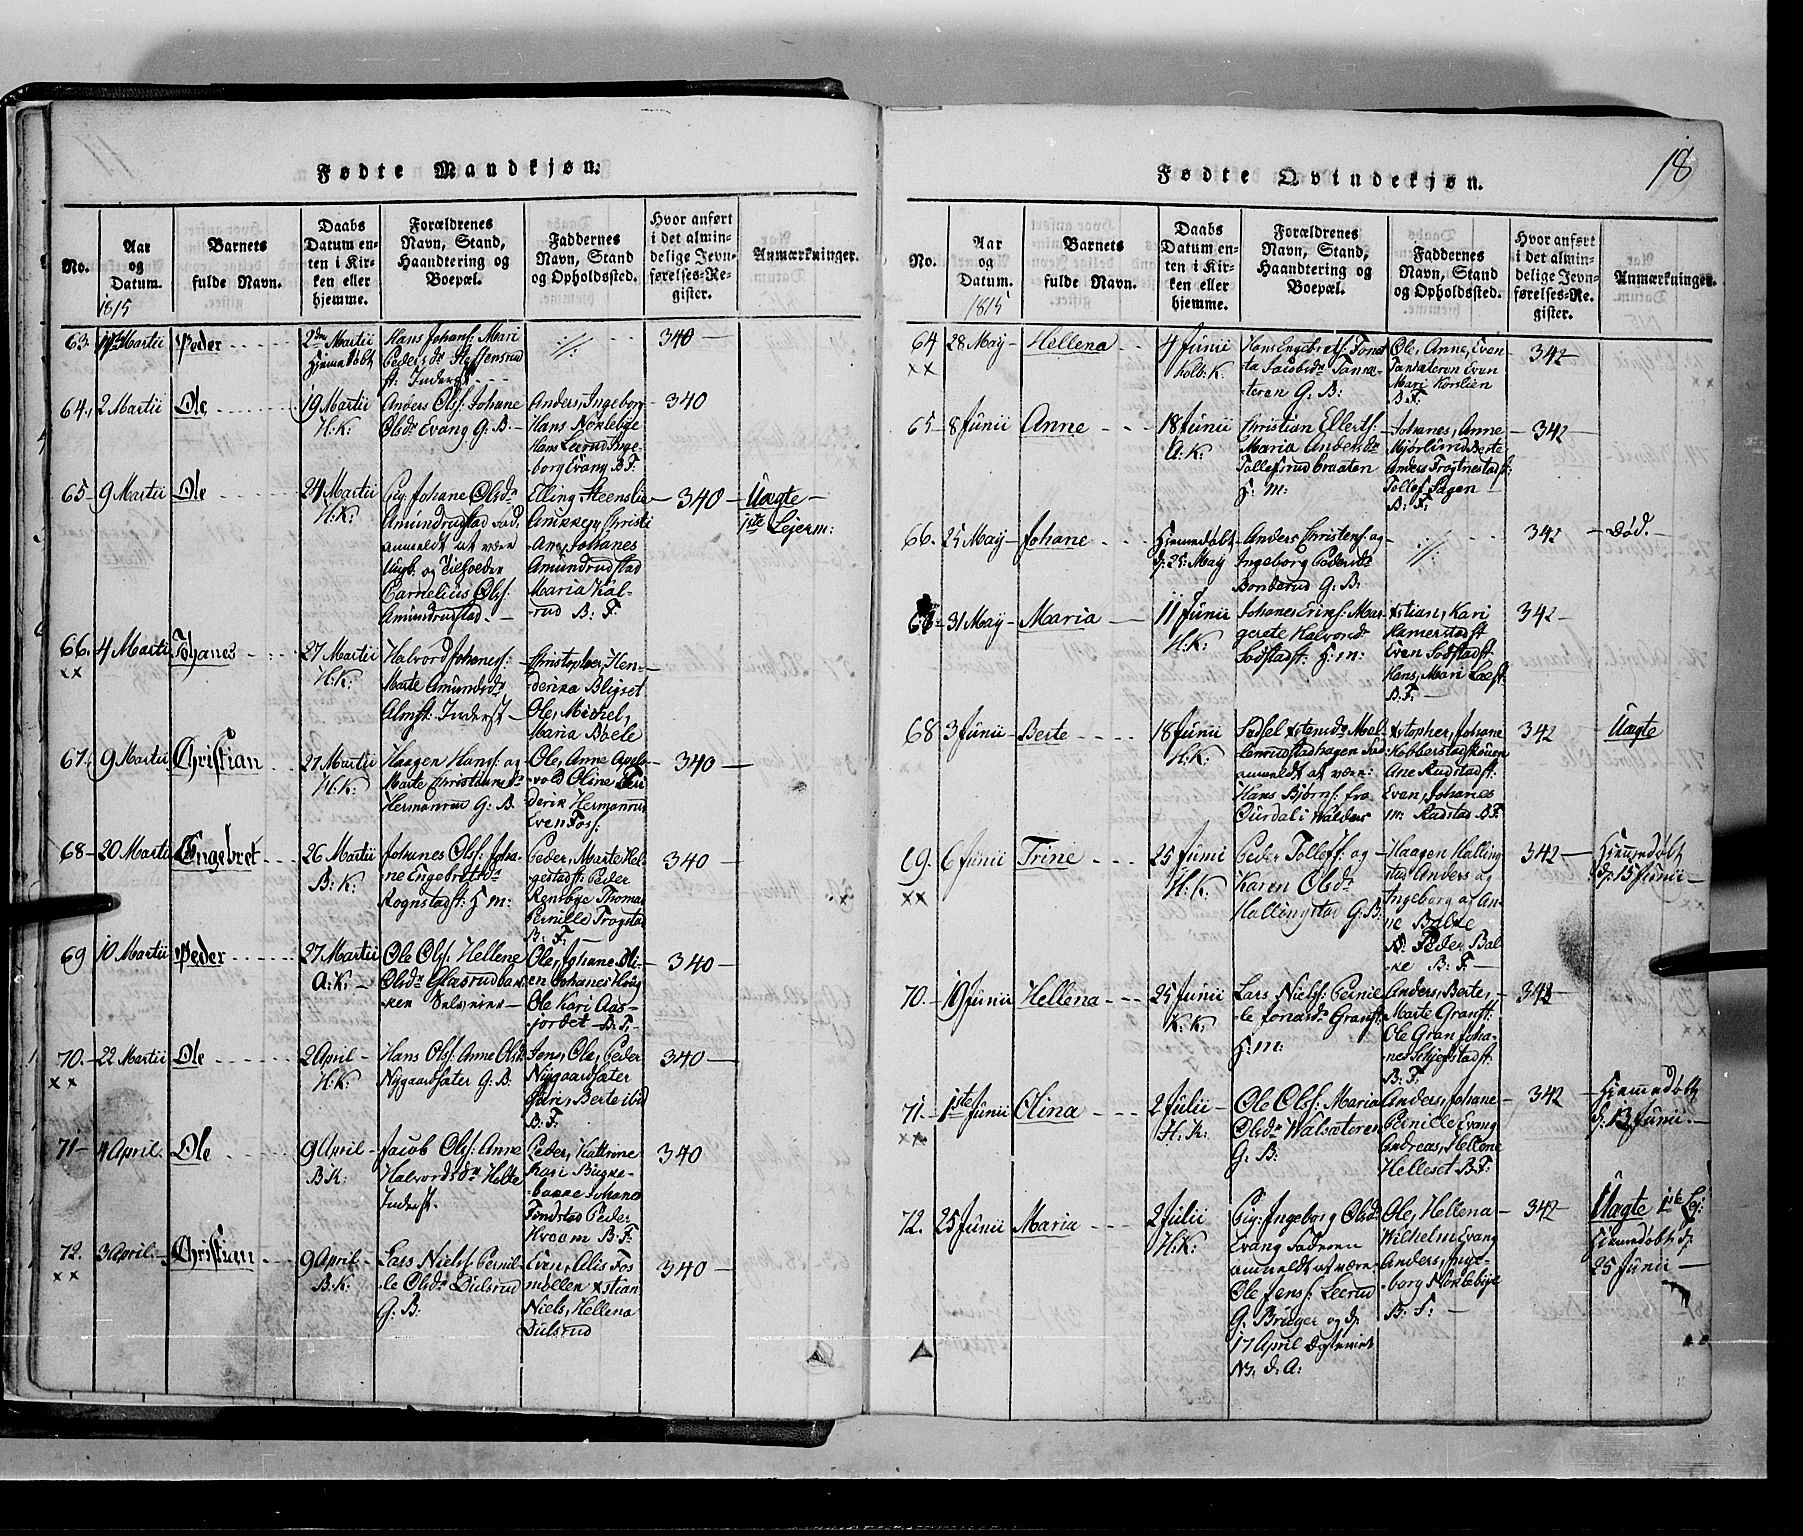 Fødte Mandkjøn.
No.
Aar
og
Datum.
1815
Barnets
fulde Navn.
Daabs
Datum en-
ten i Kir-
ken eller
hjemme.
Forældrenes
Navn, Stand,
Haandtering og
Boepæl.
Faddernes
Navn, Stand
og Opholdssted.
Hvor anført
i det almin-
delige Jevn-
førelses-Re-
gister.
Anmærkninger.
63. Martii Peder
2den Martii
Hjemedøbt
Hans Johans: Mari
Pedersdr
ft: Inderst
340
64. 2 Martii Ole
19 Martii
H: K:
Anders Ols: Johane
Olsdr Evang G: B
Anders, Ingeborg
Hans Nøklebye
Hans Leerud Inge-
borg Evang B: F:
340
65 9 Martii Ole
24 Martii
H: K:
Pig: Johane Olsdr
Amundrudstad
anmeldt at være
Ungk: og
Cornelius Ols:
Amundrudstad.
Elling Steenslie
Christi
An, Johanes
Amundrudstad
Maria Kal-
rud B: F
340
Uægte
1ste Lejerm:
66. xx 4 Martii Johanes
27 Martii
H: K:
Halvord Johanes:
Marte Amundsdr
Almft: Inderst
Christopher, Hen-
derina Bligset
Ole, Michel,
Maria Boele
67. 9 Martii Christian
27 Martii
H: K:
Haagen Hans: og
Marte Christiansdr
Hermanrud G: B
Ole, Anne Apel-
vold Oline
Hermanrud
Even Fos:
340
68 20 Martii Engebret
26 Martii
B: K:
Johanes Ols: Joha-
ne Engebretsdr
Rognstadft: H: m:
Peder, Marte Hel-
gestadft: Peder
Rensbye Thomas
Pernille Trogstad
B: F:
340
69 10 Martii Peder
27 Martii
A: K:
Ole Ols: Hellene
Olsdr Glasrudbak
ken Selveier
Ole, Johane Oli-
en Johanes
Ole Kari Aas-
jordet B: F:
340
70. xx 22 Martii Ole
2 April
H: K:
Hans Ols: Anne Olsdr
Nygaardsæter G: B:
Jens, Ole, Peder
Nygaardsæter
Guri, Berte ibid
B: F:
340
71 4 April. Ole
9 April
B: K:
Jacob Ols: Anne
Halvordsdr Holte
Inderst.
Peder, Kattrine
Kari
Johanes
Tondstad Peder
Kraam B: F:
340
72. xx 3 April Christian
9 April
B: K:
Lars Niels: Pernil-
le Olsdr Dulsrud
G: B:
Even, Alis Fos
mollen Xstian
Niels, Hellena
Dulsrud
340
Fødte Qvindekjøn.
18
No.
Aar
og
Datum.
1815
Barnets
fulde Navn.
Daabs
Datum en-
ten i Kir-
ken eller
hjemme.
Forældrenes
Navn, Stand,
Haandtering og
Boepæl.
Faddernes
Navn, Stand
og Opholdssted.
Hvor anført
i det almin-
delige Jevn-
førelses-Re-
gister.
Anmærkninger.
64 xx 28 May Hellena
4 Junii
K:
Hans Engebrets:
Jacobsdr
teren G: B:
Ole, Anne, Even
Even
Mari Korslien
B: F:
342
65 8 Junii Anne
18 Junii
A: K:
Christian Ellerts:
Maria Andersdr
Tollefsrudbraaten
H: m:
Johanes, Anne
Mjørlund Berte
Anders Trogtnestadft:
Tollef Sagen
B: F:
342
66. 25 May Johane
Hjemedøbt
d: 25 May
Anders Christens: og
Ingeborg Pedersdr
Bonderud G: B:
342
Død.
67 31 May Maria
11 Junii
H: K
Johanes Erics: Mar
gerete Halvordsdr
Sodstadft: H: m:
Xstian, Kari
Hamerstadft
Even Sodstadft
Hans, Mari
B: F:
342
68 3 Junii Berte
18 Junii
H: K:
Sidsel Xstensdr
anmeldt at være:
Hans Bjørns: fra
Ourdal i Walders
Xstopher, Johane
Kobberstad
Ane Rudstadft:
Even, Johanes
m: Rudstad B: F:
342
Uægte
69. xx 6 Junii Trine
25 Junii
H: K:
Peder Tollefs: og
Karen Olsdr
Hallingstad G: B:
Haagen Halling
stad Anders og
Ingeborg af An-
ne Balke
B: Peder Bal-
ke B: F:
342
Hjemedøbt
d: 15 Junii
70. 10 Junii Hellena
25 Junii
K: K:
Lars Niels: Pernil-
le Jonasdr Granft:
H: m:
Anders, Berte,
Marte Granft:
Ole Gran Joha-
nes Schjefstadft:
B: F:
342
71. xx 1ste Junii Olina
2 Julii
H: K:
Ole Ols: Maria
Olsdr Walsæteren
G: B:
Anders, Johane
Pernille Evang
Andreas, Hellene
Helleset B: F:
342
Hjemedøbt
d: 13 Junii.
72. 25 Junii Maria
2 Julii
H: K:
Pig: Ingeborg Olsdr
Evang
anmeldt at være
Ole Jens: Leerud
G: Bruger og d:
17 April
No. d: A:
Ole, Hellena
Wilhelm Evang
Anders, Inge-
borg Nøklebye
B: F:
342
Uægte 1ste Lej:
Hjemedøbt d:
25 Junii